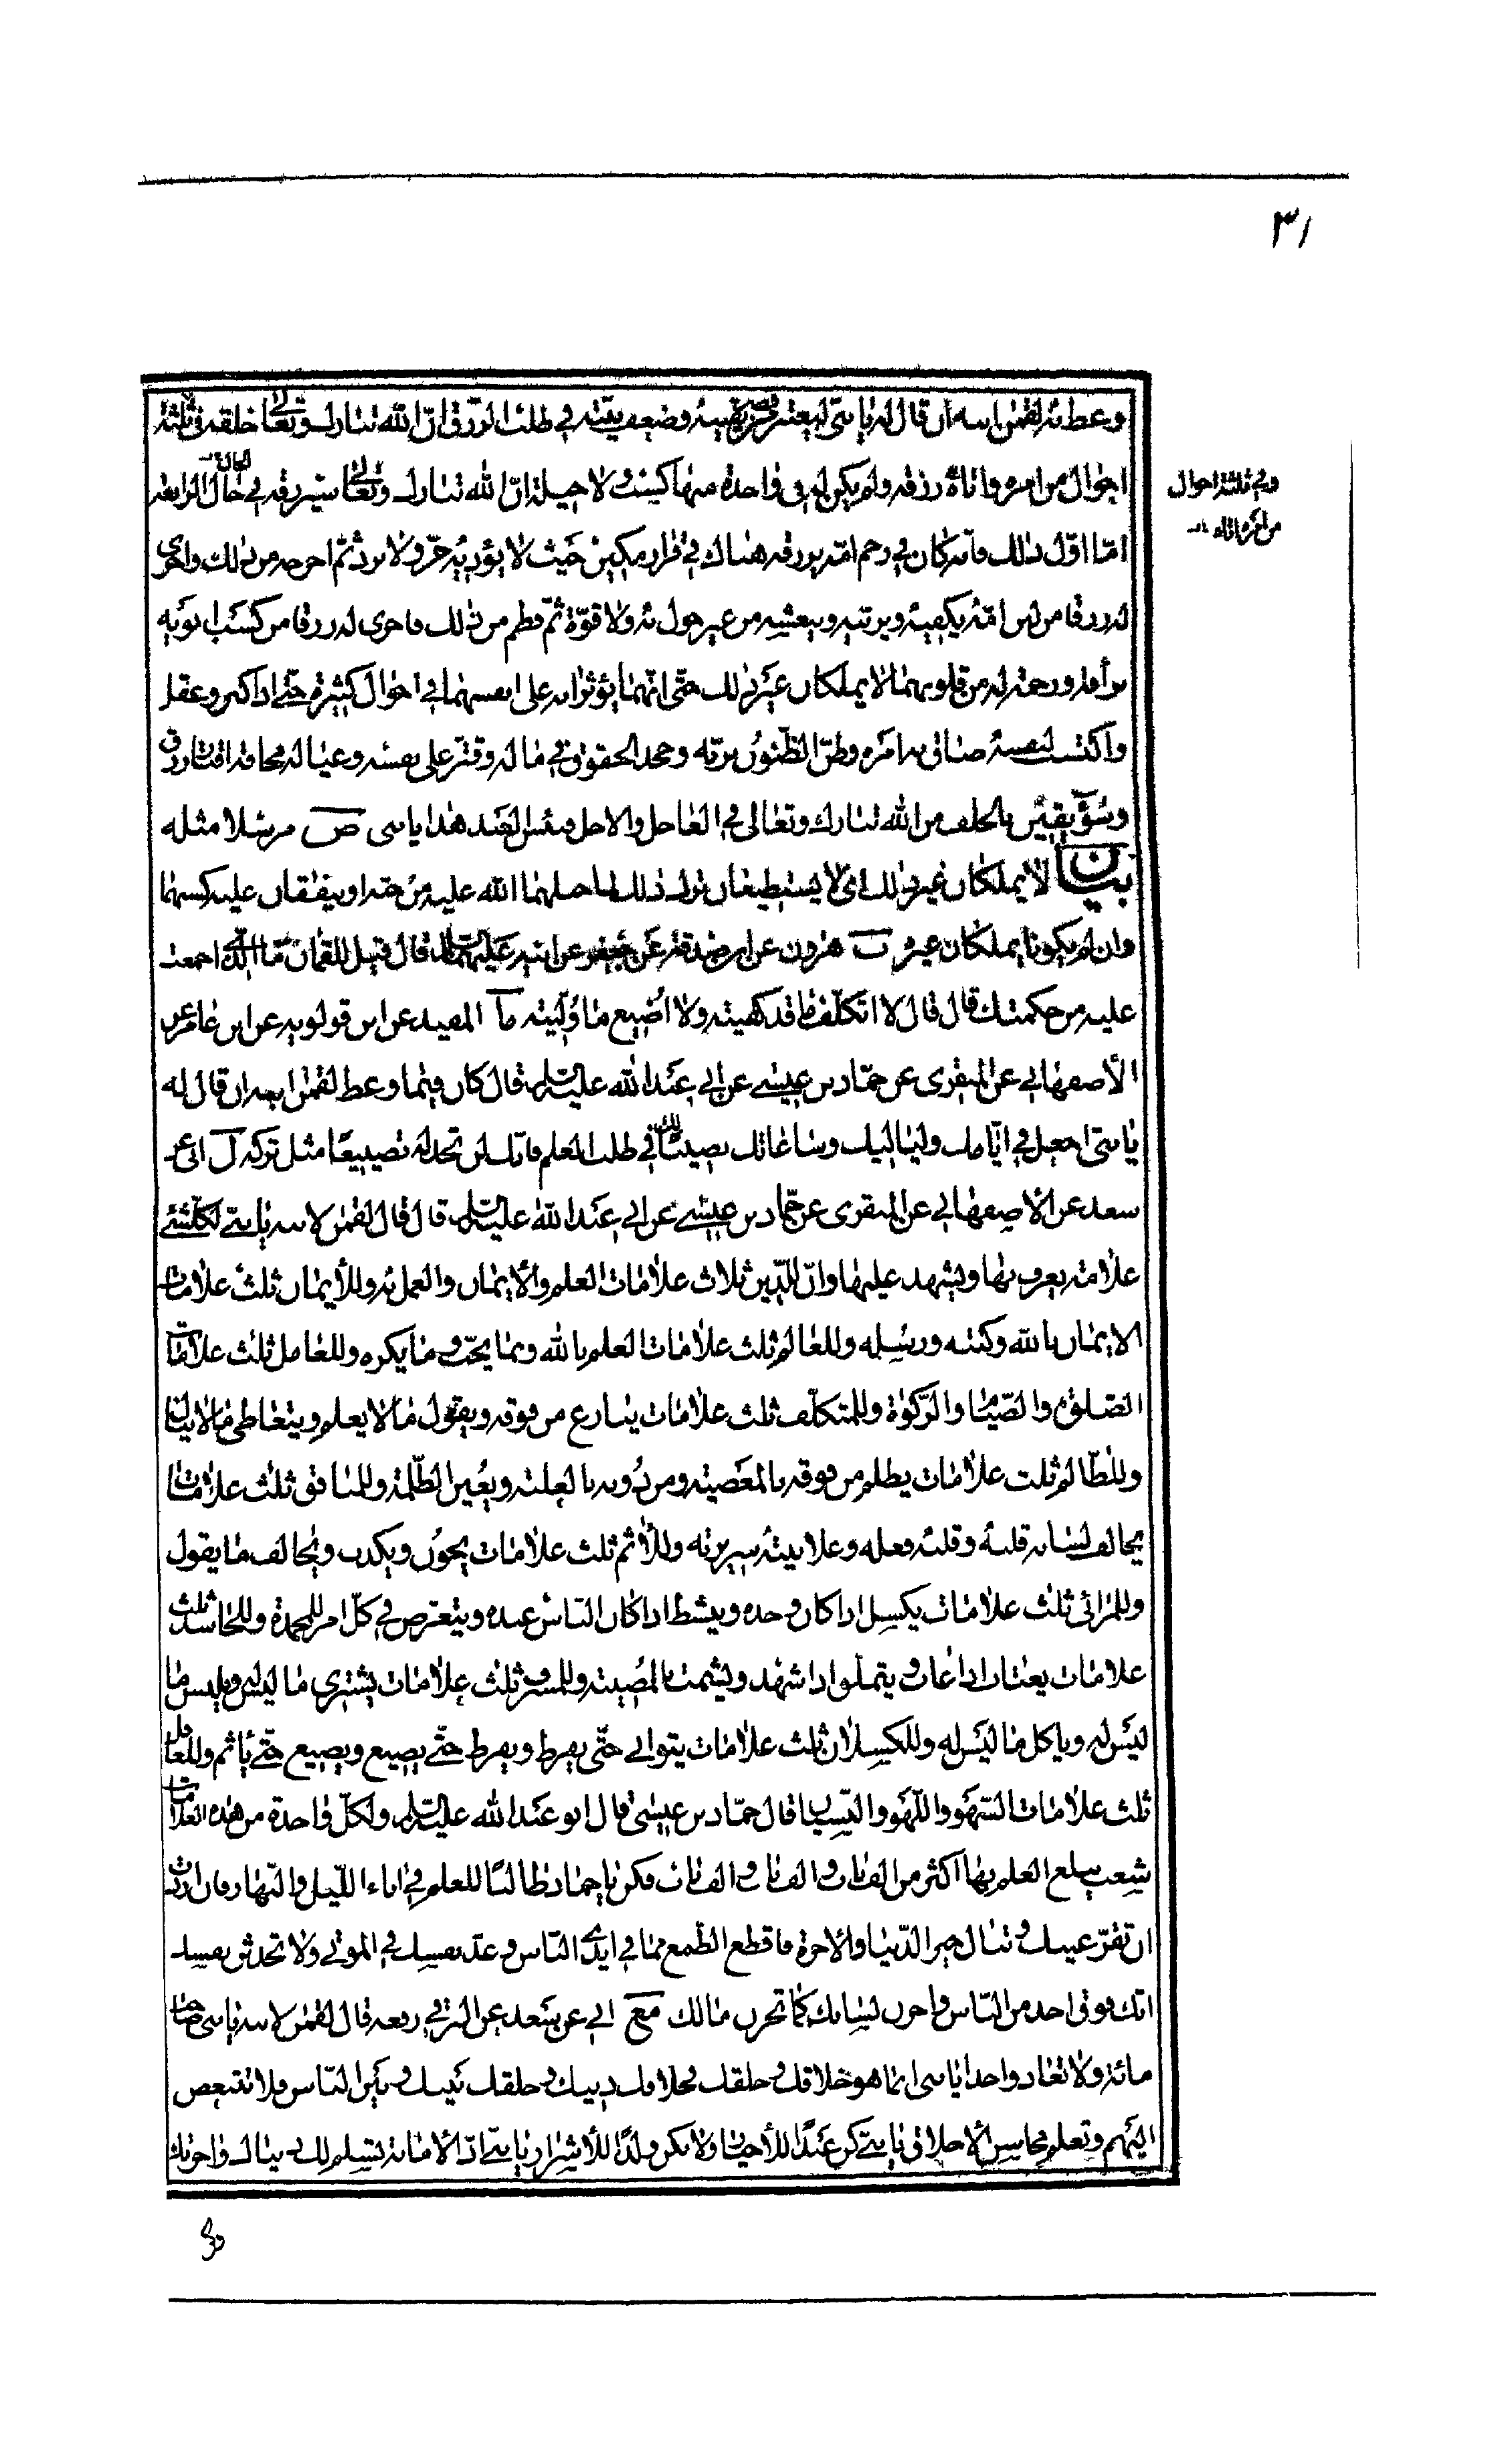 ٣١
وعظ به لقمن ابنه ان قال له يا بني ليعتبر من قصر يقينه وضعف نيته في طلب الرزق ان الله تبارك وتعالى خلقه في ثلثة
احوال من امره واتاه رزقه ولم يكن له في واحدة منها كسب ولا حيلة ان الله تبارك وتعالى سيرزقه في الحال الرابعة
في ثلثة احوال
من امره واتاه
اما اول ذلك فانه كان في رحم امه يرزقه هناك في قرار مكين حيث لا يؤذيه حر ولا برد ثم اخرجه من ذلك واجرى
له رزقا من لبن امه يكفيه ويربيه وينعشه من غير حول به ولا قوة ثم فطم من ذلك فاجرى له رزقا من كسب ابويه
برأفة ورحمة له من قلوبهما لا يملكان غير ذلك حتى انهما يؤثرانه على انفسهما في احوال كثيرة حتى اذا كبر وعقل
واكتسب لنفسه ضاق به امره وظن الظنون بربه وجحد الحقوق في ماله وقتر على نفسه وعياله مخافة اقتار رزق
وسوء يقين بالخلف من الله تبارك وتعالى في العاجل والاجل فبئس العبد هذا يا بني ص مرسلا مثله
بيان لا يملكان غير ذلك اي لا يستطيعان ترك ذلك لما جبلهما الله عليه من حبه او ينفقان عليه كسبهما
وان لم يكونا يملكان غيره ب هرون عن ابن صدقة عن جعفر عن ابيه عليهما السلام قال قيل للقمان ما الذي اجمعت
عليه من حكمتك قال قال لا اتكلف ما قد كفيته ولا اضيع ما وليته ما المفيد عن ابن قولويه عن ابن عامر عن
الأصفهاني عن المنقري عن حماد بن عيسى عن ابي عبد الله عليه السلم قال كان فيما وعظ لقمن ابنه ان قال له
يا بني اجعل في ايامك ولياليك وساعاتك نصيبا لك في طلب العلم فانك لن تجد له تضييعا مثل تركه ل ابي عن
سعد عن الاصفهاني عن المنقري عن حماد بن عيسى عن ابي عبد الله عليه السلم قال قال لقمن لابنه يا بني لكل شئ
علامة يعرف بها ويشهد عليها وان للدين ثلاث علامات العلم والايمان والعمل به وللأيمان ثلث علامات
الايمان بالله وكتبه ورسله وللعالم ثلث علامات العلم بالله وبما يحب وما يكره وللعامل ثلث علامات
الصلوة والصيام والزكوة وللمتكلف ثلث علامات ينازع من فوقه ويقول ما لا يعلم ويتعاطى ما لا ينال
وللظالم ثلث علامات يظلم من فوقه بالمعصية ومن دونه بالغلبة ويعين الظلمة وللمنافق ثلث علامات
يخالف لسانه قلبه وقلبه فعله وعلانيته سريرته وللأثم ثلث علامات يخون ويكذب ويخالف ما يقول
وللمرائي ثلث علامات يكسل اذا كان وحده وينشط اذا كان الناس عنده ويتعرض في كل امر للمحمدة وللحاسد ثلث
علامات يغتاب اذا غاب ويتملق اذا شهد ويشمت بالمصيبة وللمسرف ثلث علامات يشتري ما ليس له ويلبس ما
ليس له وياكل ما ليس له وللكسلان ثلث علامات يتوانى حتى يفرط ويفرط حتى يضيع ويضيع حتى يأثم وللغافل
ثلث علامات السهو واللهو والنسيان قال حماد بن عيسى قال ابو عبد الله عليه السلم ولكل واحدة من هذه العلامات
شعب يبلغ العلم بها اكثر من الف باب والف باب والف باب فكن يا حماد طالبا للعلم في اناء الليل والنهار فان اردت
ان تقر عينك وتنال خير الدنيا والاخرة فاقطع الطمع مما في ايدي الناس وعد نفسك في الموتى ولا تحدثن نفسك
انك فوق احد من الناس واخزن لسانك كما تخزن مالك مع ابي عن سعد عن البرقي رفعه قال لقمن لابنه يا بني صاحب
مائة ولا تعاد واحدا يا بني انما هو خلاقك وخلقك فخلاقك دينك وخلقك بينك وبين الناس فلا تتبغض
اليهم وتعلم محاسن الاخلاق يا بني كن عبدا للأخيار ولا تكن ولدا للأشرار يا بني اد الامانة تسلم لك دنياك واخرتك